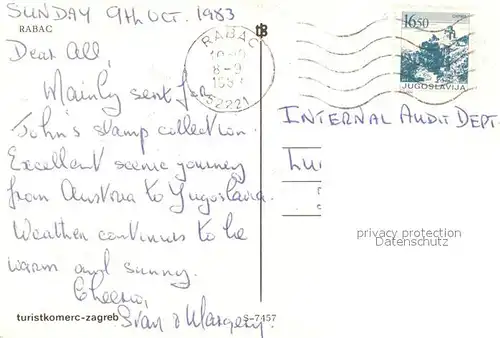 SUNDAY 9th OCT. 1983
RABAC
Dear All,
Mainly sent for
John's stamp collection.
Excellent scenic journey
from Austria to Yugoslavia.
Weather continues to be
warm and sunny.
Cheerio,
& Margery.
turistkomerc-zagreb
S-7457
RABAC
8-9
52221
16.50
JUGOSLAVIJA
INTERNAL AUDIT DEPT.
privacy protection
Datenschutz